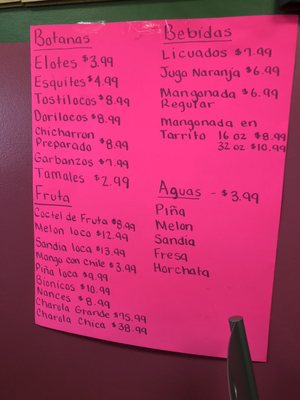 Botanas
Elotes $3.99
Esquites $4.99
Tostilocos $8.99
Dorilocos $8.99
Chicharron
Preparado $8.99
Garbanzos $7.99
Tamales $2.99
Fruta
Coctel de Fruta $8.99
Melon loco $12.99
Sandia loca $13.99
Mango con Chile $3.99
Piña loca $9.99
Bionicos $10.99
Nances $8.99
Charola Grande $75.99
Charola Chica $38.99
Bebidas
Licuados $7.99
Jugo Naranja $6.99
Mangonada $6.99
Regular
Mangonada en
Tarrito 16 oz $8.99
32 oz $10.99
Aguas - $3.99
Piña
Melon
Sandia
Fresa
Horchata